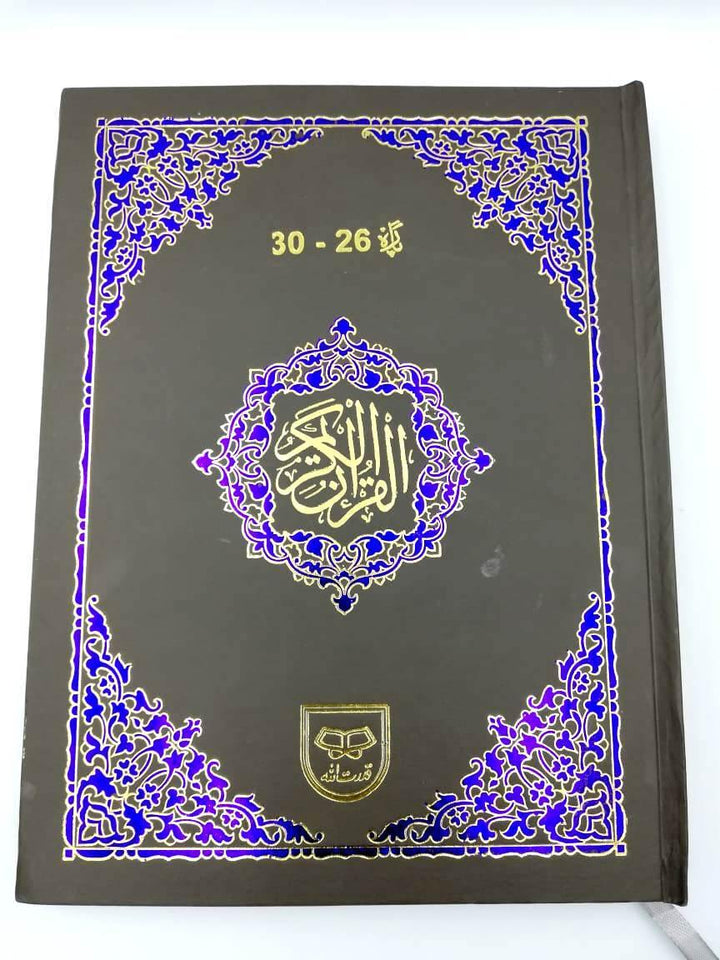 پارہ 26 - 30
القرآن الكريم
قدرت اللہ